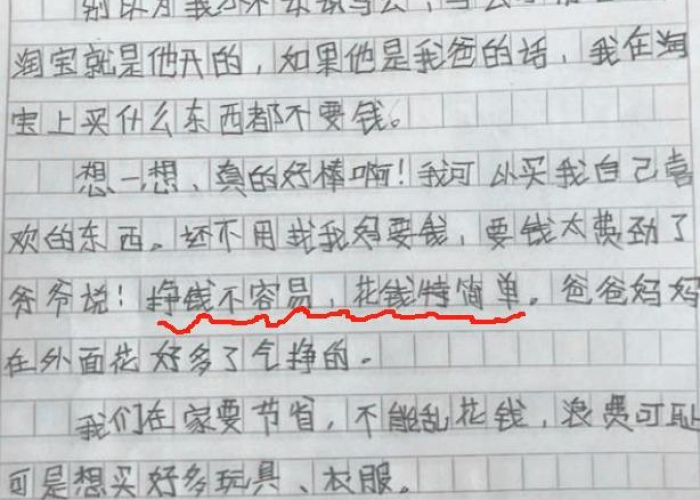 淘宝就是他开的，如果他是我爸的话，我在淘
宝上买什么东西都不要钱。
想一想、真的好棒啊！我可以买我自己喜
欢的东西。还不用找我妈要钱，要钱太费劲了
爷爷说！挣钱不容易，花钱特简单。爸爸妈妈
在外面花好多了气挣的。
我们在家要节省，不能乱花钱，浪费可耻
可是想买好多玩具、衣服。